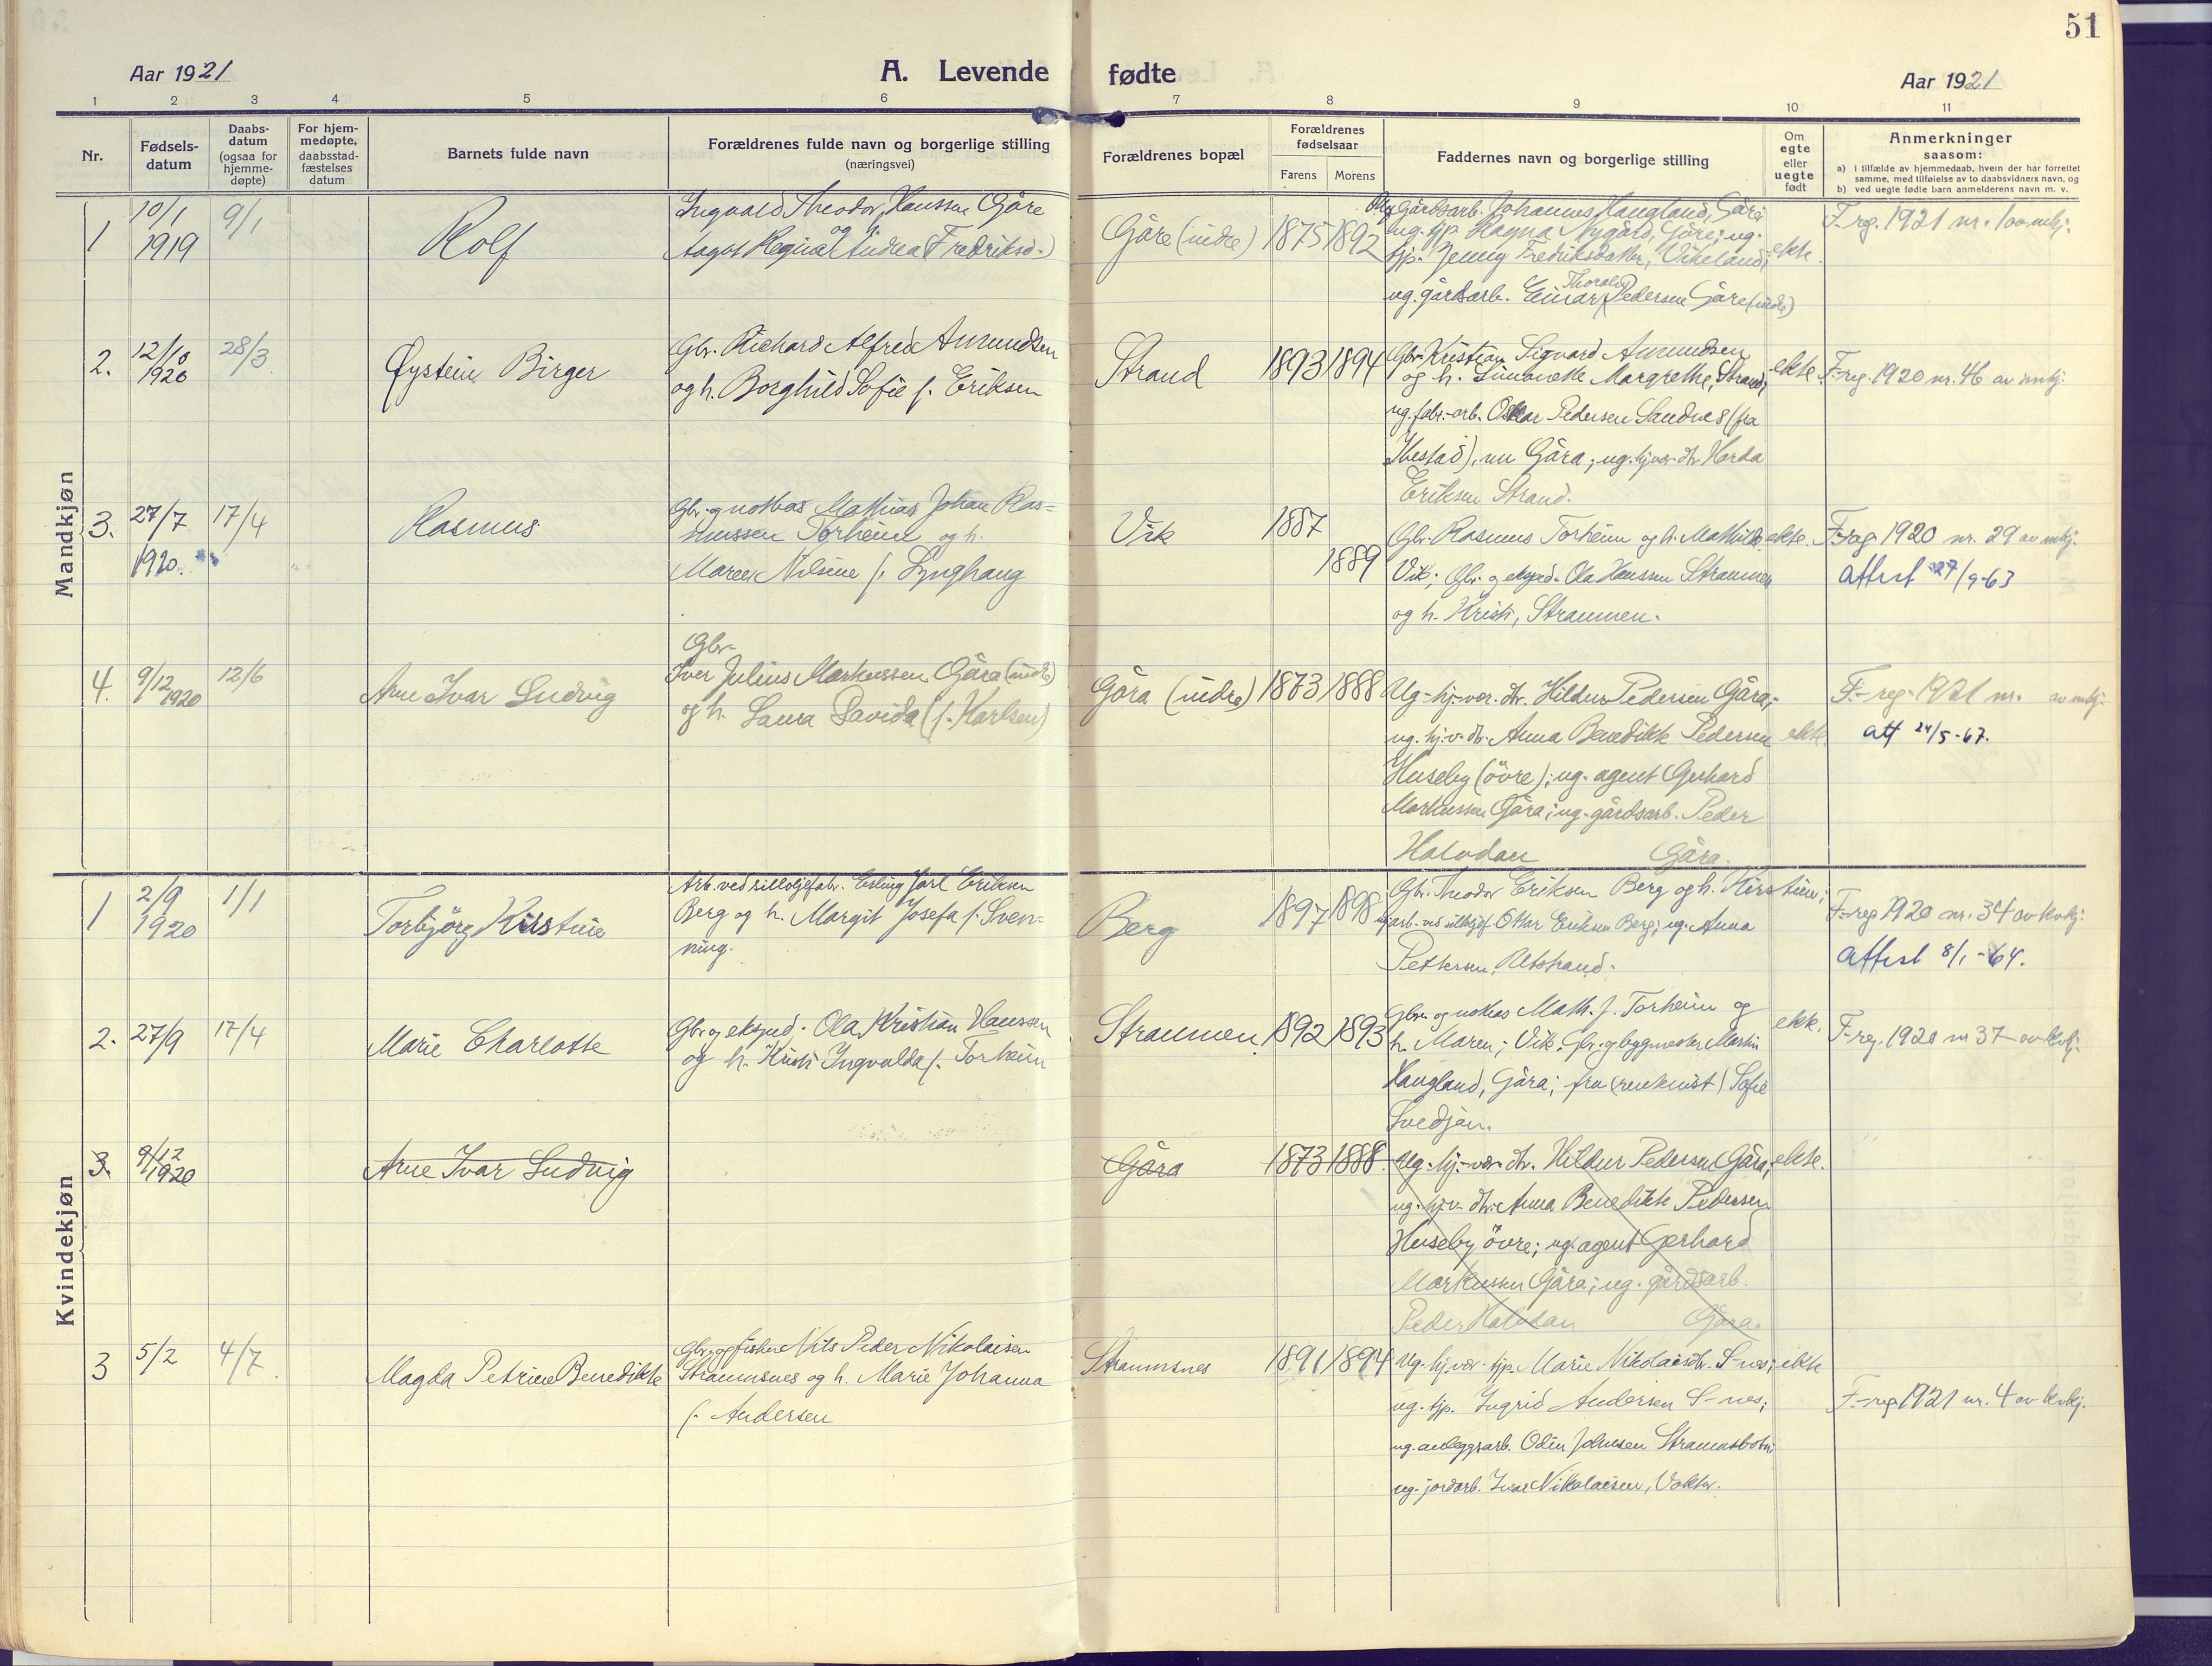 51
Aar 1921
A. Levende fødte
Aar 1921
1 2 3 4 5 6 7 8 9 10 11
Nr.
Fødsels-
datum
Daabs-
datum
(ogsaa for
hjemme-
døpte)
For hjem-
medøpte,
daabsstad-
fæstelses
datum
Barnets fulde navn
Forældrenes fulde navn og borgerlige stilling
(næringsvei)
Forældrenes bopæl
Forældrenes
fødselsaar
Farens Morens
Faddernes navn og borgerlige stilling
Om
egte
eller
uegte
født
Anmerkninger
saasom:
a) i tilfælde av hjemmedaab, hvem der har forrettet
samme, med tilføielse av to daabsvidners navn, og
b) ved uegte fødte barn anmelderens navn m. v.
Mandkjøn
1
10/1
1919
9/1
Rolf
Ingvald Theodor Hanssen Gåre
og h.
Aagot Regina Andrea (Fredriksd.)
Gåre (indre)
1875 1892
Ug. Gårdsarb. Johannes Haugland, Gåre;
ug. tjp. Ragna Nygård, Gåre; ug.
tjp. Jenny Fredriksdatter, Vikeland;
Thoralf
ug. gårdsarb. Einar Pedersen Gåre (indre)
ekte.
F. reg. 1921 nr. 1 av mkj.
2.
12/10
1920
28/3
Øystein Birger
Gbr. Richard Alfred Amundsen
og h. Borghild Sofie f. Eriksen
Strand
1893 1894
Gbr. Kristian Sigvard Amundsen
og h. Simonette Margrethe, Strand;
ug. fabr.-arb. Oskar Pedersen Sandnes (fra
Ibestad), nu Gåra; ug. hj.vær. dtr. Harda
Eriksen Strand.
ekte.
F-reg. 1920 nr. 46 av mkj.
3.
27/7
1920.
17/4
Rasmus
Gbr. og notbas Mathias Johan Ras-
mussen Torheim og h.
Maren Nilsine f. Lynghaug
Vik
1887
1889
Gbr. Rasmus Torheim og h. Mathilde
Vik; Gbr. og eksped. Ola Hanssen Straumen
og h. Kristi, Straumen.
ekte.
F-reg 1920 nr. 29 av mkj.
Attest 27/9-63
4.
9/12 1920
12/6
Arne Ivar Ludvig
Gbr.
Iver Julius Markussen Gåra (indre)
og h. Laura Davida (f. Karlsen)
Gåra (indre)
1873 1888
Ug. hj.-vær. dtr. Hildur Pedersen Gåra;
ug. hj.v. dtr. Anna Benedikte Pedersen
Huseby (övre); ug. agent Gerhard
Markussen Gåra; ug. gårdsarb. Peder
Halvdan Gåra.
ekte.
F-reg. 1921 nr. av mkj.
att 24/5-67.
Kvindekjøn
1
2/9
1920
1/1
Torbjörg Kirstine
Arb. ved sildoljefabr. Erling Jarl Eriksen
Berg og h. Margit Josefa f. Sven-
ning.
Berg
1897 1898
Gbr. Theodor Eriksen Berg og h. Kirstine;
ug. arb. ved sildoljef. Ottar Eriksen Berg; ug. Anna
Pettersen,
F-reg 1920 nr. 34 av kvkj.
Attest 8/1-64.
2.
27/9
17/4
Marie Charlotte
Gbr. og eksped. Ola Kristian Hanssen
og h. Kristi Ingvalda f. Torheim
Straumen
1892 1893
Gbr. og notbas Math. J. Torheim og
h. Maren; Vik. Gbr. og bygmester Martin
Haugland, Gåra; fru Sofie
Svedjan.
ekte.
F-reg. 1920 nr 37 av kvkj.
3.
9/12
1920
Arne Ivar Ludvig
Gåra
1873 1888.
Ug. hj.-vær. dtr. Hildur Pedersen Gåra;
ug. hj.v. dtr. Anna Benedikte Pedersen
Huseby övre; ug. agent Gerhard
Markussen Gåra; ug. gårdsarb.
Peder Halvdan Gåra.
ekte.
3
5/2
4/7
Magda Petrine Benedikte
Gbr. og fisker Nils Peder Nikolaisen
Straumsnes og h. Marie Johanna
f. Andersen
Straumsnes
1891 1894
Ug. hj.vær. tjp. Marie Nikolaisdtr. S-nes;
ug. tjp. Ingrid Andersen S-nes;
ug. anleggsarb. Odin Johnsen Straumsbotn;
ug. jordarb. Ivar Nikolaisen,
ekte
F-reg 1921 nr. 4 av kvkj.